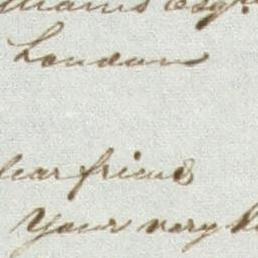 lliams Esqr
London
dear friend
Your very k